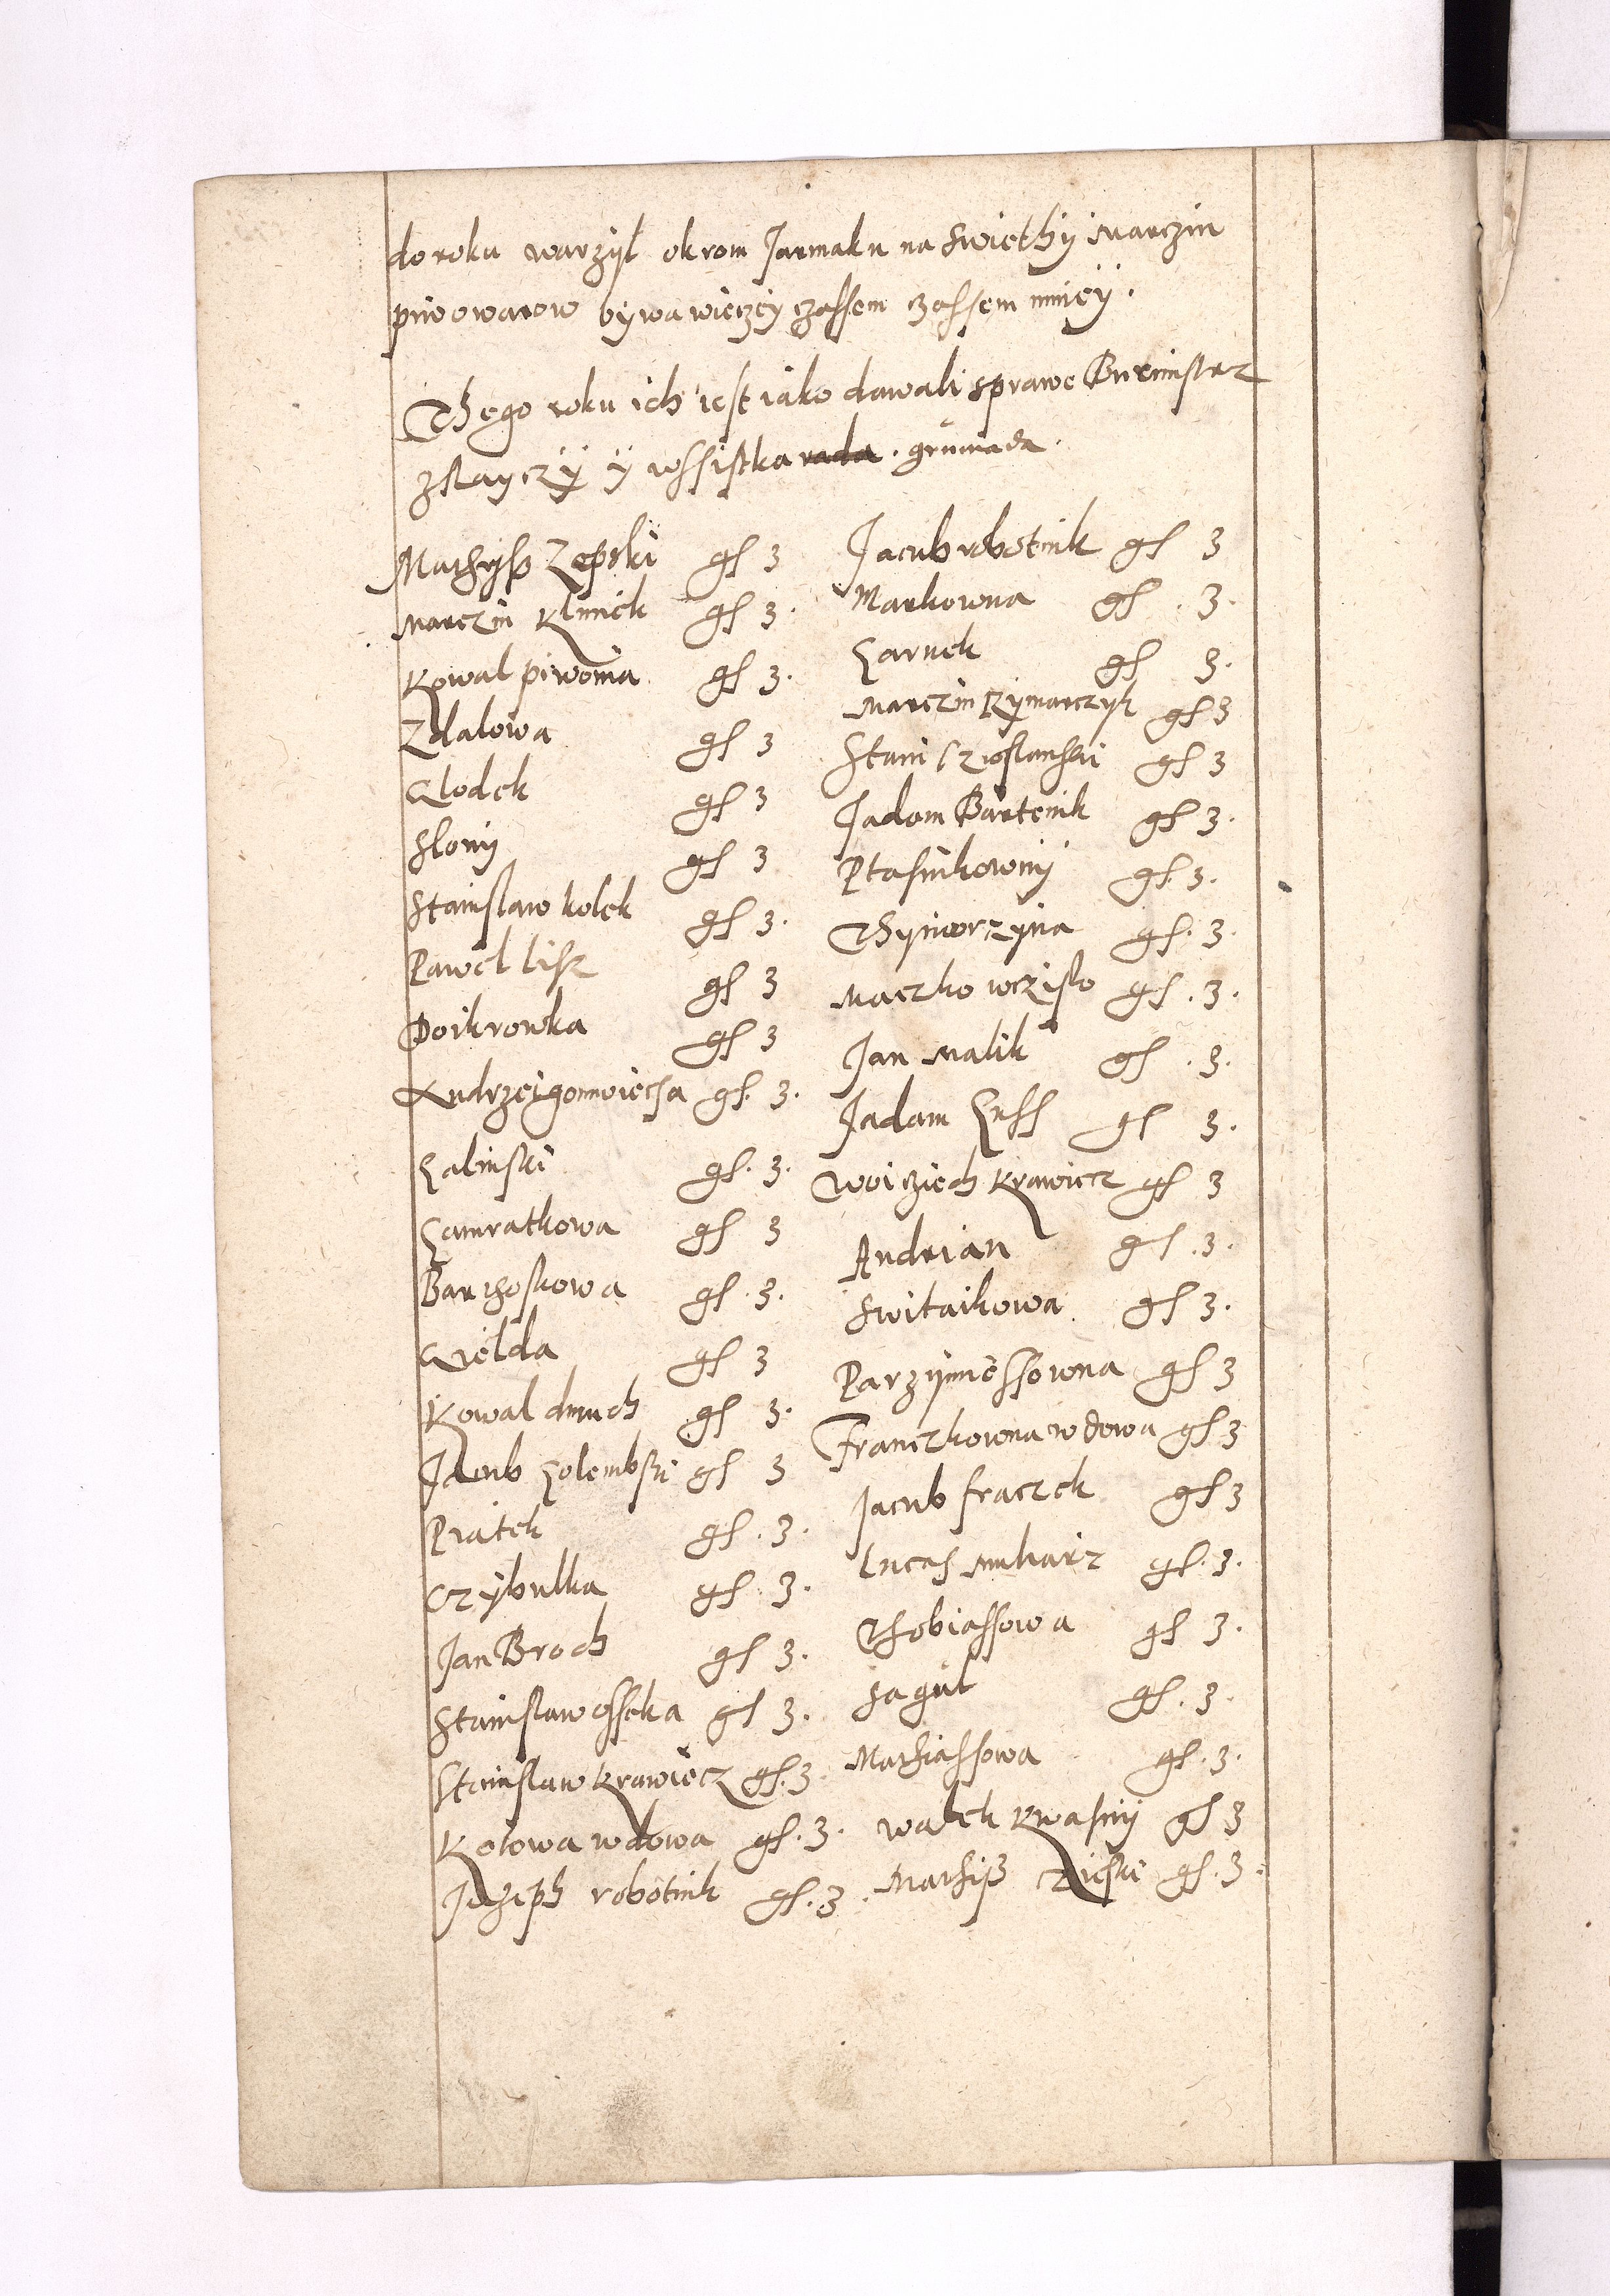 do roku warzÿl okrom Jarmaku na Swiethÿ Marczin
piwowarow bywa wieczeÿ czassem czassem mnieÿ.
Thego roku ich iest iako dawali sprawe Burmistrz
z Rayczÿ ÿ wssistka rada. grumada.
Mathyss Zepski gs 3
Marczin Klimek gs 3.
Kowal piwonia gs 3.
Zdalowa gs 3
Clodek gs 3
Slony gs 3
Stanislaw kolek gs 3.
Pawel lisz gs 3
Doikrowka gs 3
Andrzei gomoiecha gs. 3.
Zalinski gs. 3.
Zamratkowa gs 3
Barthoskowa gs. 3.
Gielda gs 3
Kowal dmuch gs 3.
Jakub Golembski gs 3
Piatek gs. 3.
Czÿbulka gs 3.
Jan Broch gs 3.
Stanislaw osseka gs 3.
Stanislaw Krawiecz gs. 3.
Kotowa wdowa gs. 3.
Jozeph robotnik gs. 3.
Jacub robotnik gs 3
Markowna gs. 3.
Zarnek gs 3.
Marczin Rymarczyk gs 3
Stani Czwslanski gs 3
Jadam Bartenik gs 3.
Ptasinkowny gs. 3.
Thymorzyna gs. 3.
Maczko wczislo gs. 3.
Jan Malik gs. 3.
Jadam Zuss gs 3.
Woicziech Krawiecz gs 3
Andrian gs. 3.
Switaikowa gs 3.
Parzymiessowna gs 3
Franczkowna wdowa gs 3
Jacub fraczek gs 3
Lucas mularz gs. 3.
Thobiassowa gs 3.
Sagul gs. 3.
Mathiassowa gs. 3.
Walek Kwasny gs 3
Mathiss gs. 3.